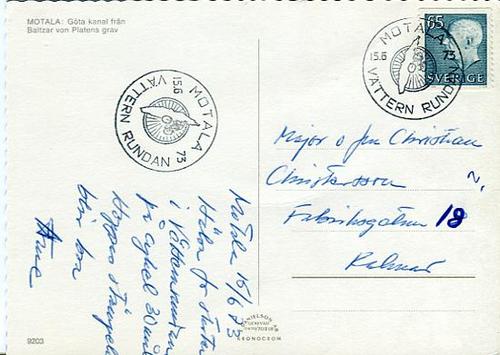 MOTALA: Göta kanal från
Baltzar von Platens grav
MOTALA 73
15.6
VÄTTERN RUNDAN
65
SVERIGE
MOTALA 73
15.6
VÄTTERN RUNDAN
Major o Fru Christian
Christersson
Fabriksgatan 18
Kalmar
Motala 15/6 73
Hälsn fr starten
i Vätternrundan
på cykel 30 mil
Hoppas
blir bra
Arne
9203